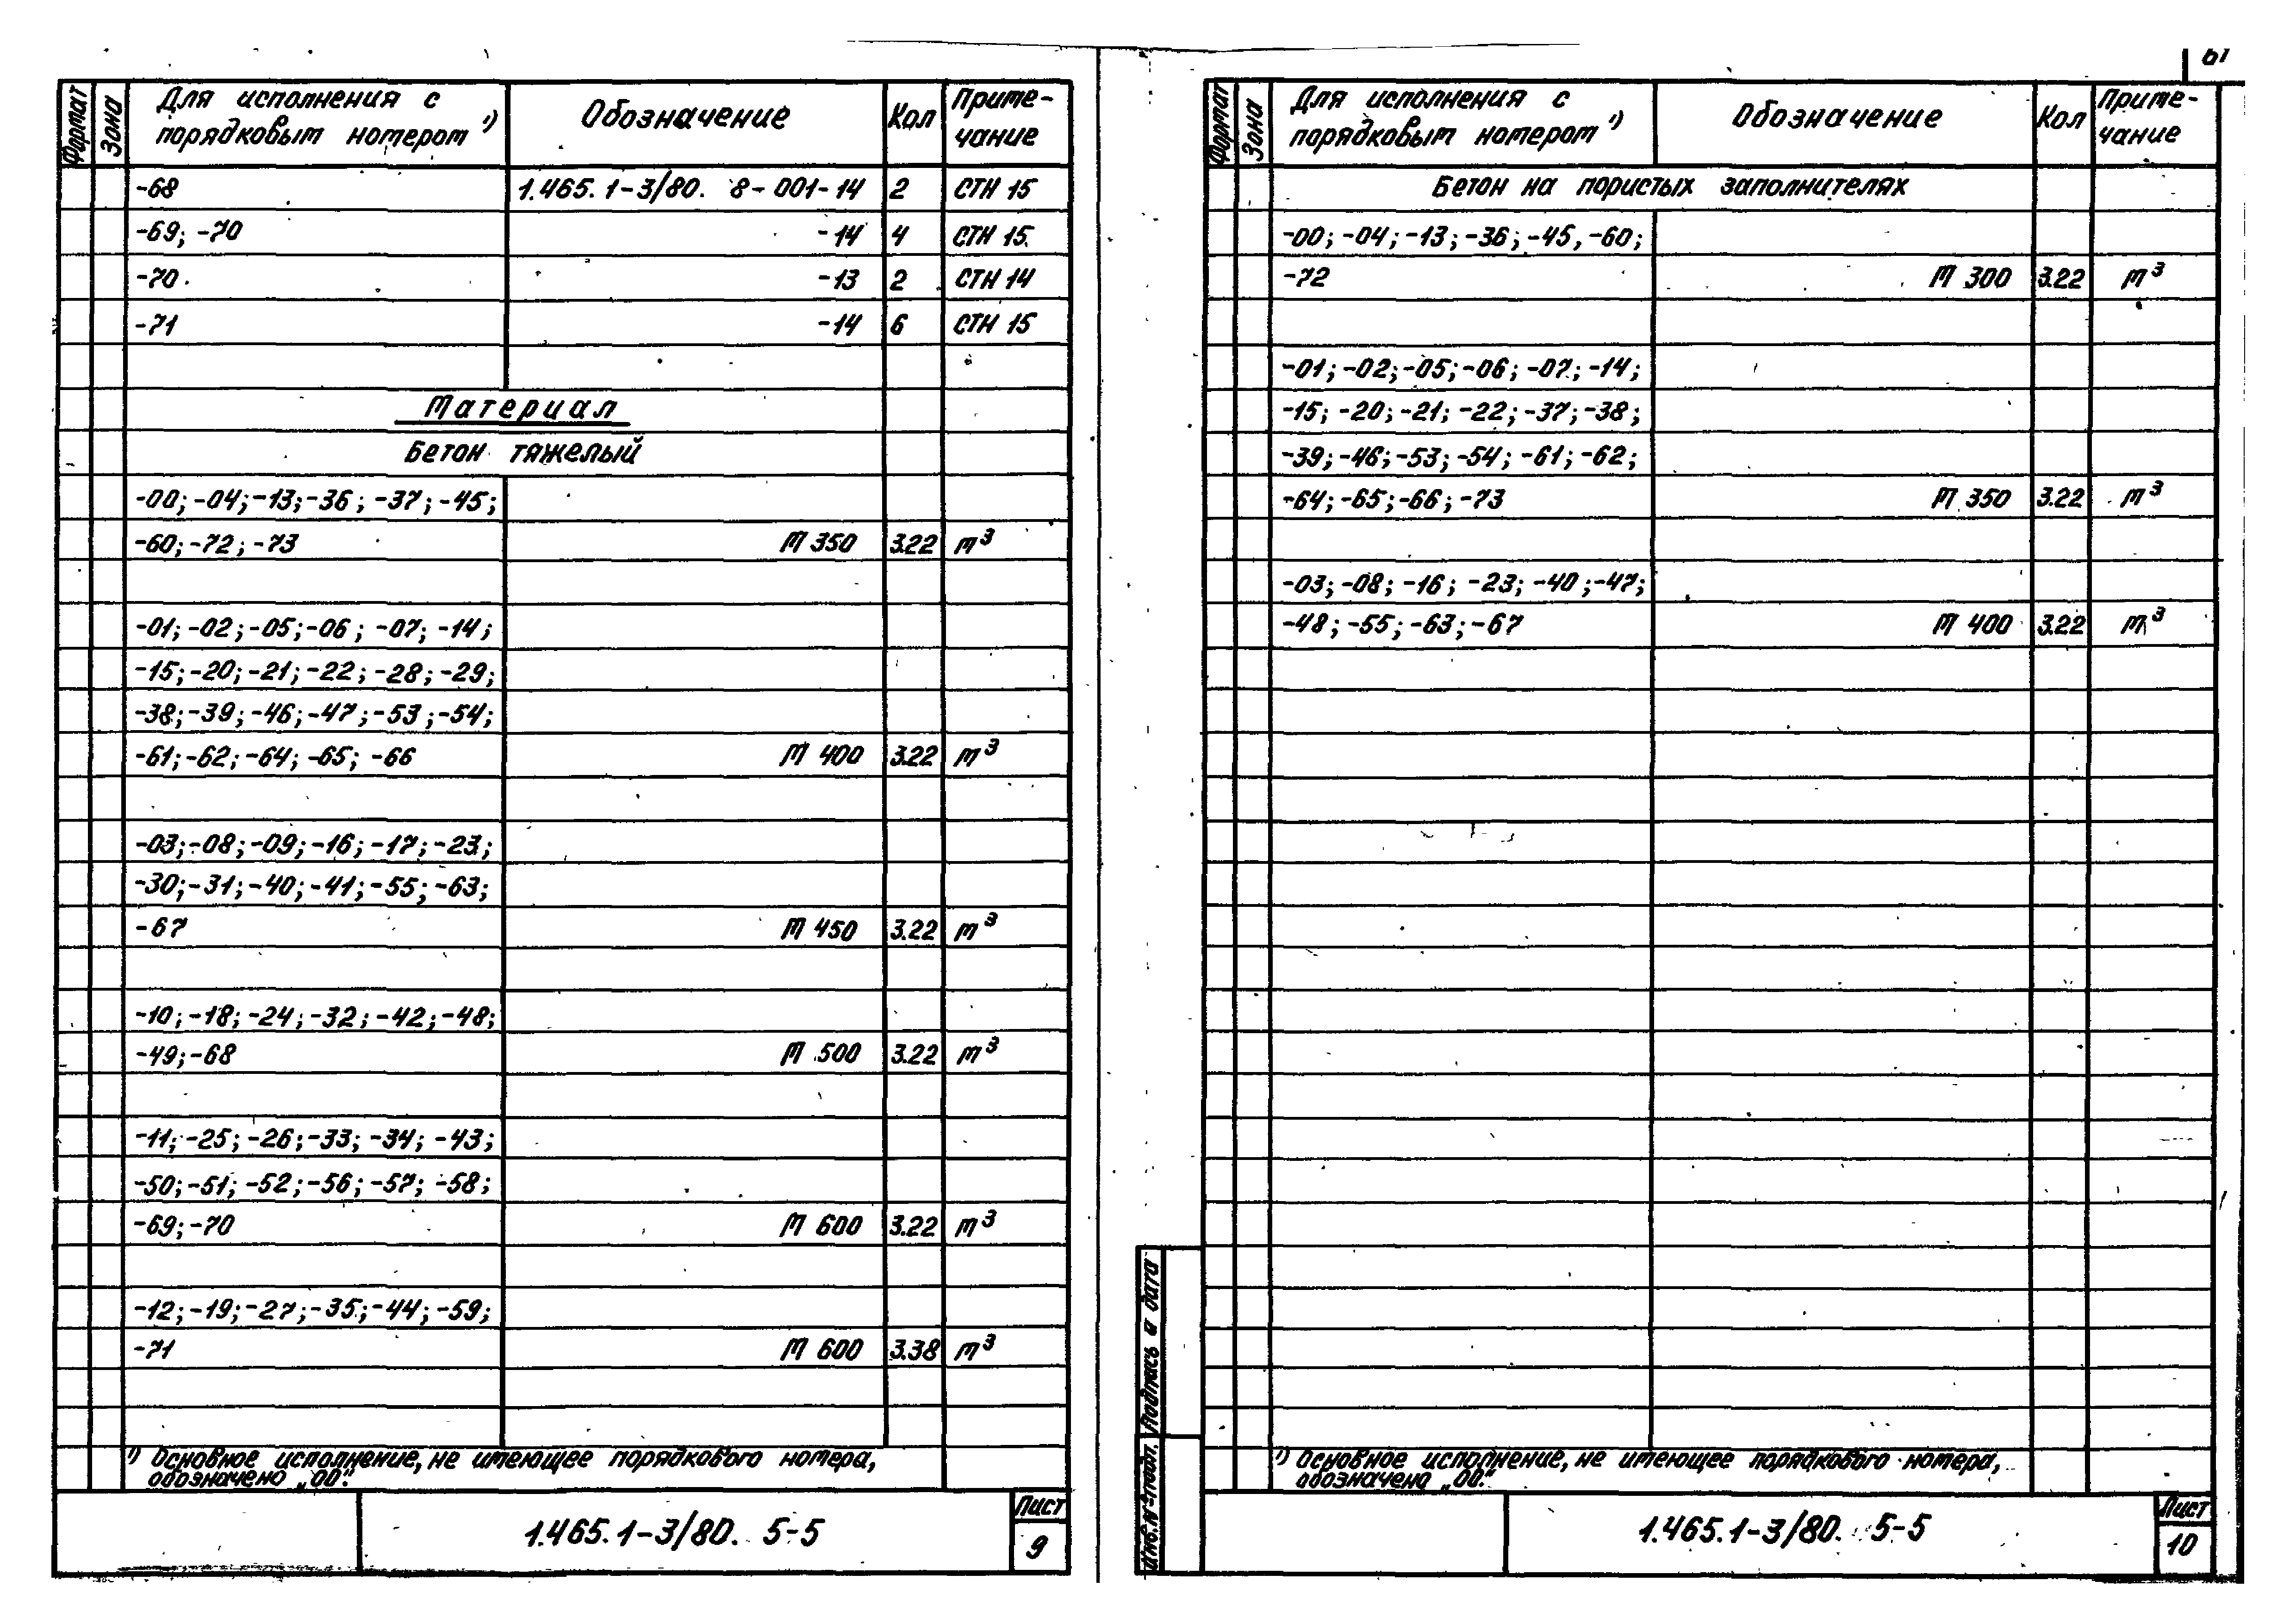 61
Формат Зона Для исполнения с порядковым номером ¹) Обозначение Кол Приме-чание
-68 1.465.1-3/80. 8-001-14 2 СТН 15
-69; -70 -14 4 СТН 15
-70 -13 2 СТН 14
-71 -14 6 СТН 15
Материал
Бетон тяжелый
-00; -04; -13; -36; -37; -45;
-60; -72; -73 М 350 3.22 м³
-01; -02; -05; -06; -07; -14;
-15; -20; -21; -22; -28; -29;
-38; -39; -46; -47; -53; -54;
-61; -62; -64; -65; -66 М 400 3.22 м³
-03; -08; -09; -16; -17; -23;
-30; -31; -40; -41; -55; -63;
-67 М 450 3.22 м³
-10; -18; -24; -32; -42; -48;
-49; -68 М 500 3.22 м³
-11; -25; -26; -33; -34; -43;
-50; -51; -52; -56; -57; -58;
-69; -70 М 600 3.22 м³
-12; -19; -27; -35; -44; -59;
-71 М 600 3.38 м³
¹) Основное исполнение, не имеющее порядкового номера,
обозначено „00".
1.465.1-3/80. 5-5
Лист
9
Формат Зона Для исполнения с порядковым номером ¹) Обозначение Кол Приме-чание
Бетон на пористых заполнителях
-00; -04; -13; -36; -45, -60;
-72 М 300 3.22 м³
-01; -02; -05; -06; -07; -14;
-15; -20; -21; -22; -37; -38;
-39; -46; -53; -54; -61; -62;
-64; -65; -66; -73 М 350 3.22 м³
-03; -08; -16; -23; -40; -47;
-48; -55; -63; -67 М 400 3.22 м³
¹) Основное исполнение, не имеющее порядкового номера,
обозначено „00".
Инв.№подл. Подпись и дата
1.465.1-3/80. 5-5
Лист
10